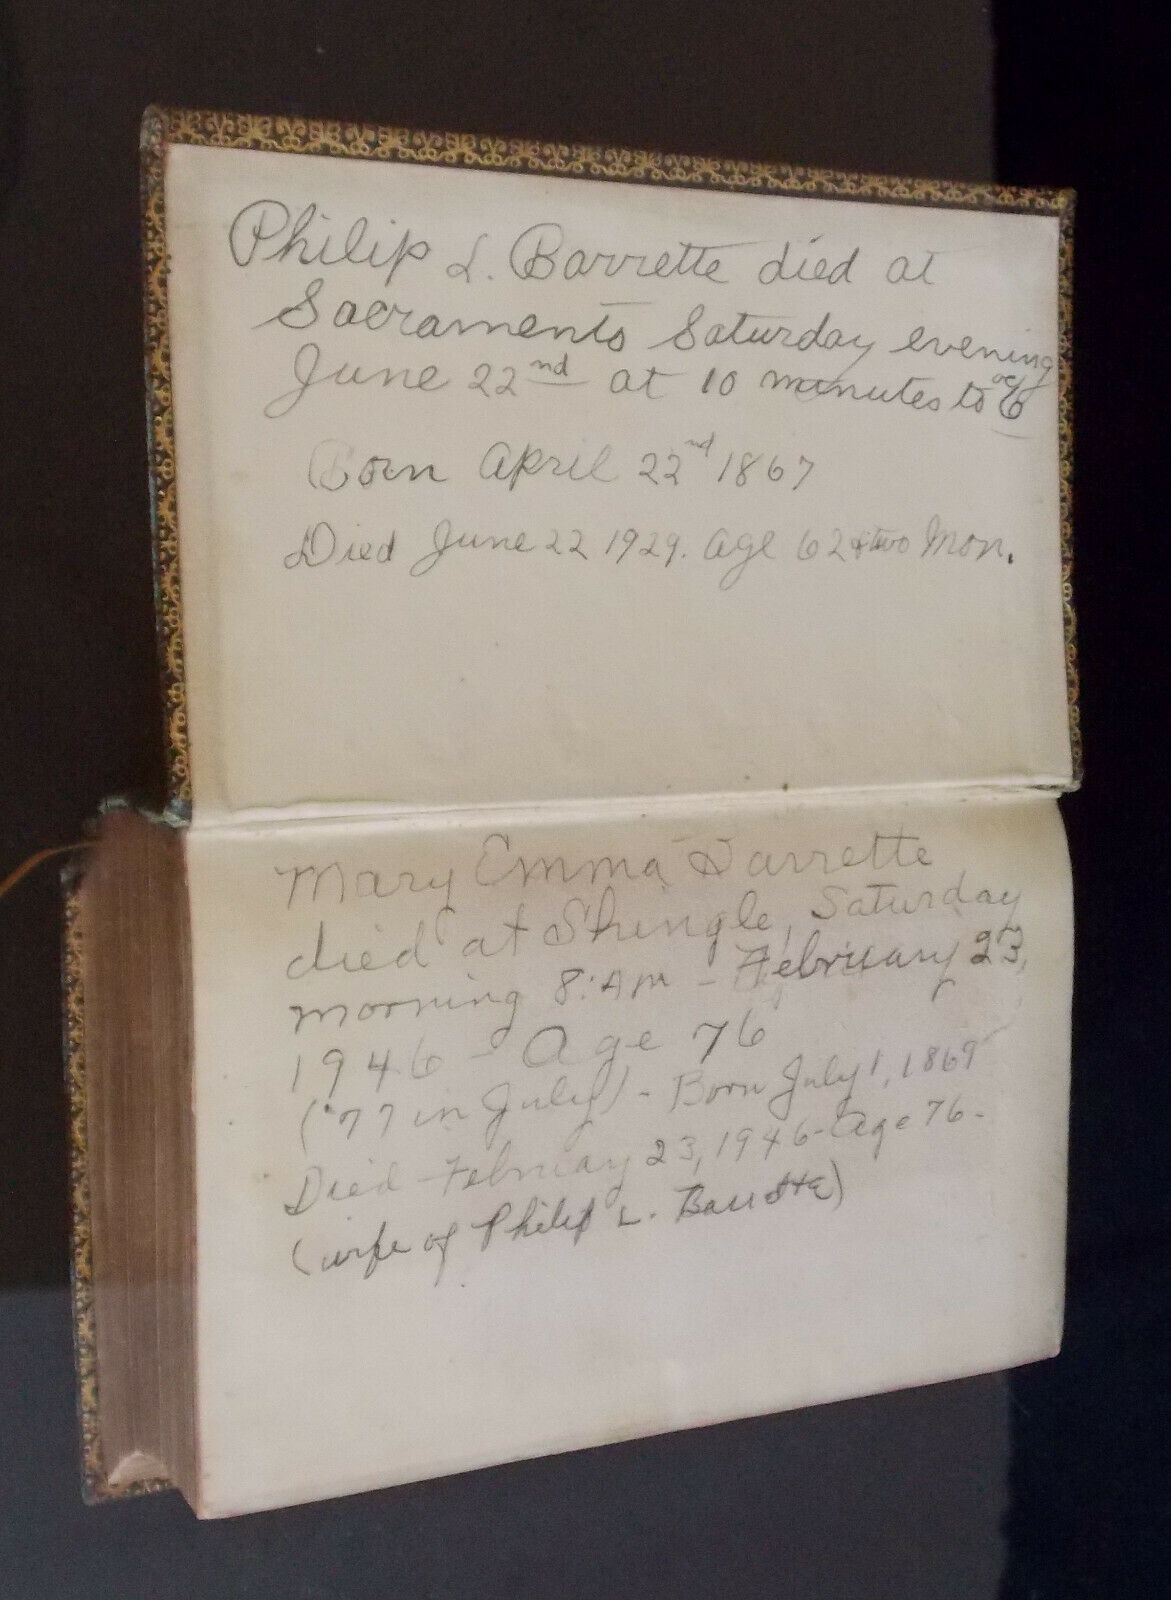 Philip L. Barrette died at
Sacramento Saturday evening
June 22nd at 10 minutes to 6
Born April 22nd 1867
Died June 22 1929. age 62 & two Mon.
Mary Emma Barrette
died at Shingle, Saturday
morning 8:AM - February 23,
1946 - Age 76
(77 in July) - Born July 1, 1869
Died February 23, 1946 - Age 76 -
(wife of Philip L. Barrette)